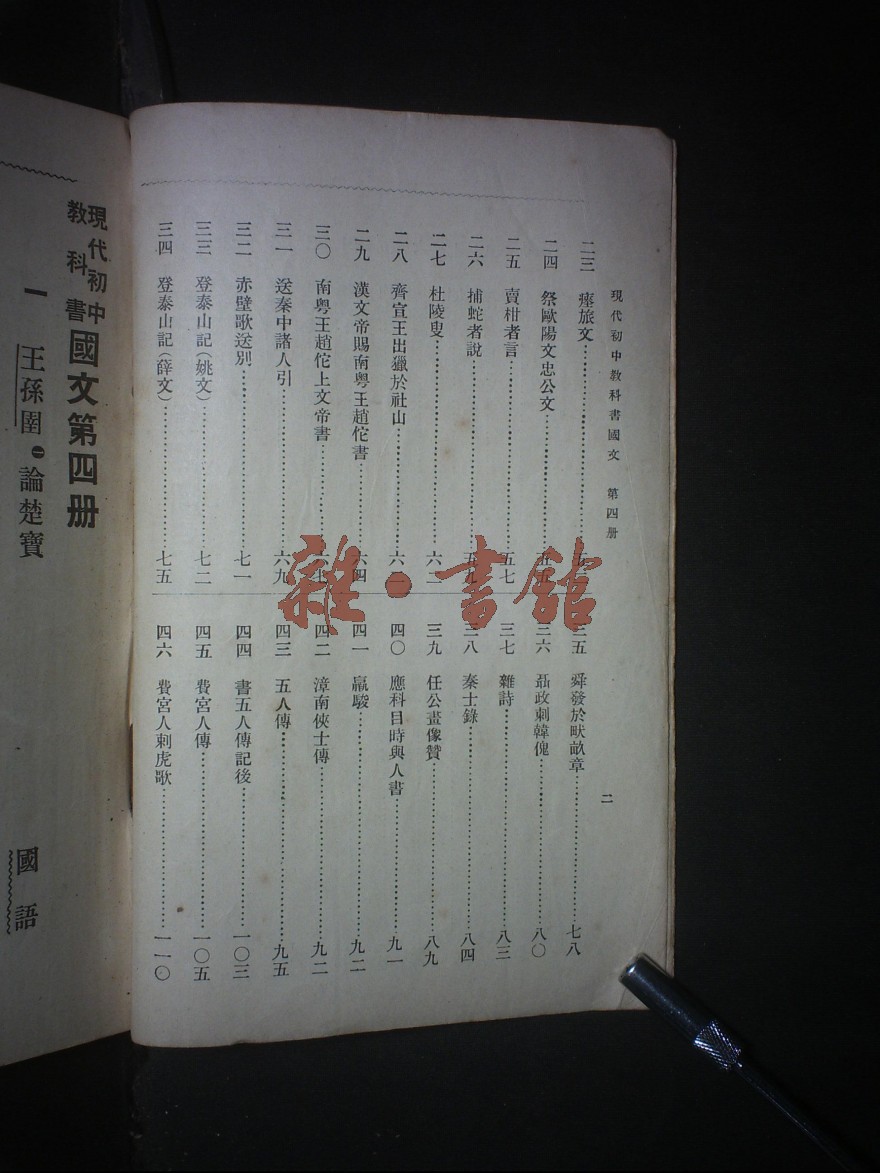 現代初中教科書國文 第四册
二
二三 瘞旅文
二四 祭歐陽文忠公文
二五 賣柑者言 五七
二六 捕蛇者說 五九
二七 杜陵叟 六二
二八 齊宣王出獵於社山 六
二九 漢文帝賜南粤王趙佗書 六四
三〇 南粤王趙佗上文帝書
三一 送秦中諸人引 六九
三二 赤壁歌送別 七一
三三 登泰山記(姚文) 七二
三四 登泰山記(薛文) 七五
三五 舜發於畎畝章 七八
三六 聶政刺韓傀 八〇
三七 雜詩 八三
三八 秦士錄 八四
三九 任公畫像贊 八九
四〇 應科目時與人書 九一
四一 羸駿 九二
四二 漳南俠士傳 九二
四三 五人傳 九五
四四 書五人傳記後 一〇三
四五 費宮人傳 一〇五
四六 費宮人刺虎歌 一一〇
雜·書館
現代初中教科書 國文第四册
一 王孫圉㊀論楚寶 國語